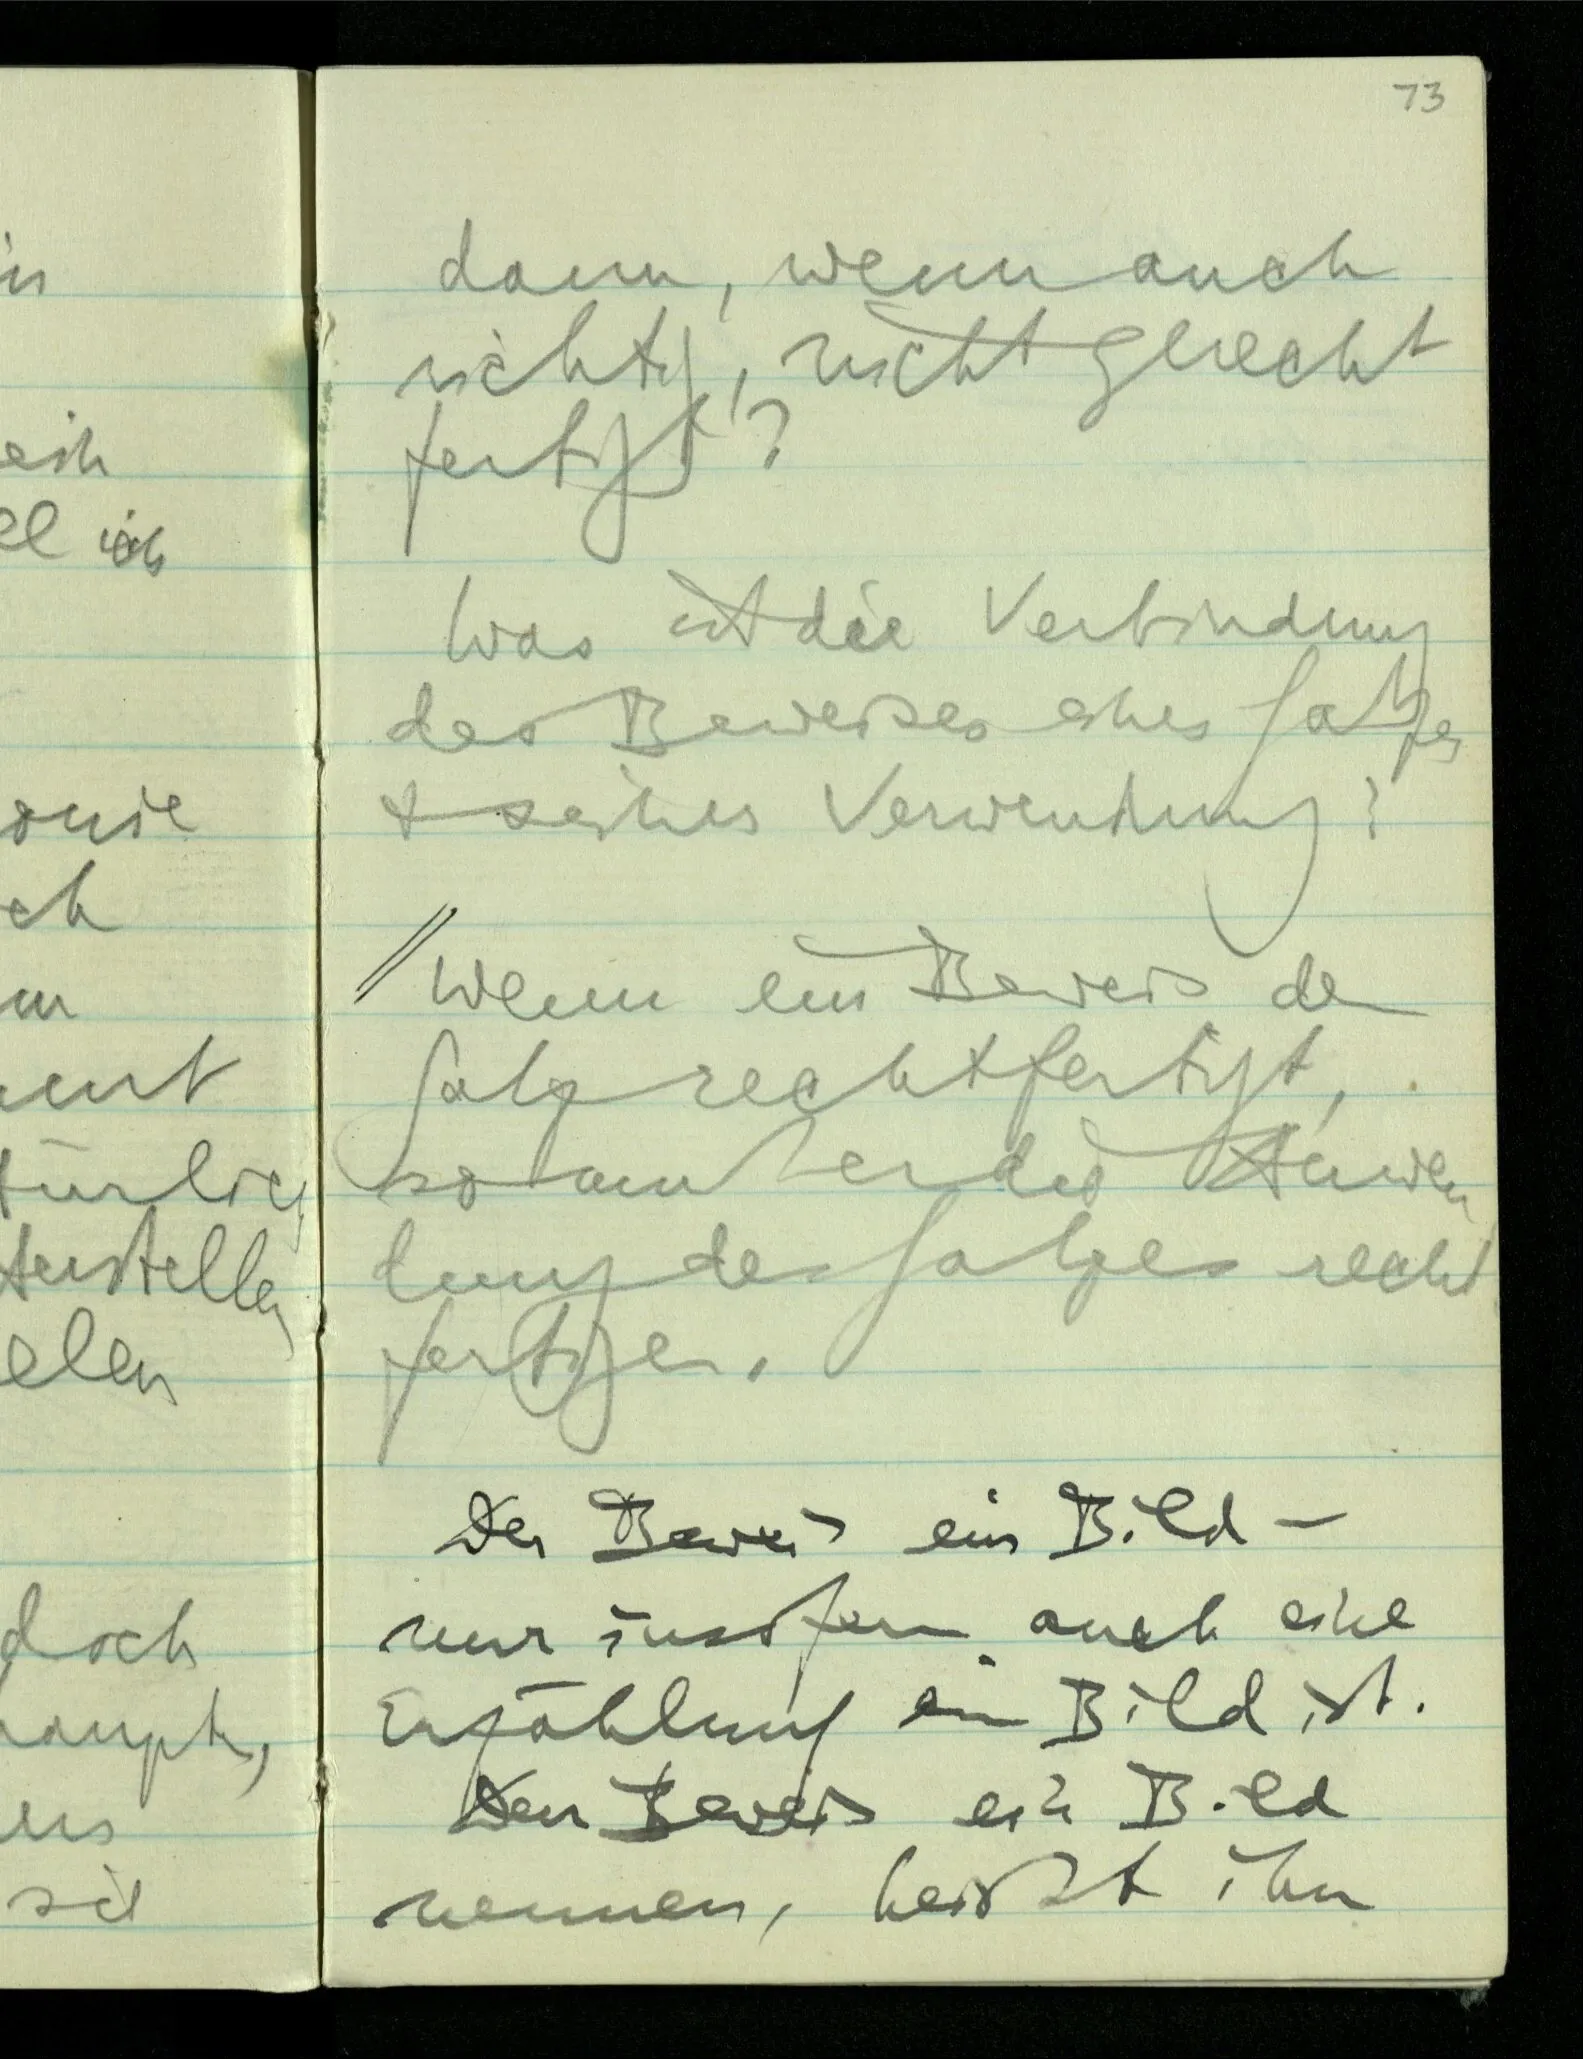 73
in
eich
el ich
onie
ch
m
ment
türlich
Anstellen
elen
doch
haupt,
ens
sit
dann, wenn auch
richtig, nicht gerecht
fertigt?
Was ist die Verbindung
des Beweises eines Satzes
& seiner Verwendung?
// Wenn ein Beweis den
Satz rechtfertigt,
so muß er die Anwen
dung des Satzes recht
fertigen.
Der Beweis ein Bild —
nur insofern auch eine
Erzählung ein Bild ist.
Den Beweis ein Bild
nennen, heißt ihn